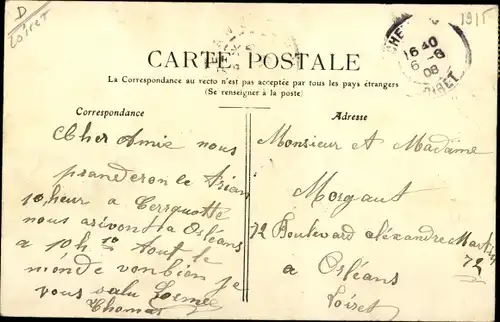 D
Loiret
1915
CHE
16 40
6-8
08
LOIRET
CARTE POSTALE
La Correspondance au recto n'est pas acceptée par tous les pays étrangers
(Se renseigner à la poste)
Correspondance
Adresse
Cher Amie nous
pranderon le
10 heur a Cerquotte
nous arivont a Orléans
a 10h 10 Tout le
monde von bien je
vous salu
Thomas
Monsieur et Madame
Morgaut
72 Boulevard aléxandre Martin
72
a Orléans
Loiret